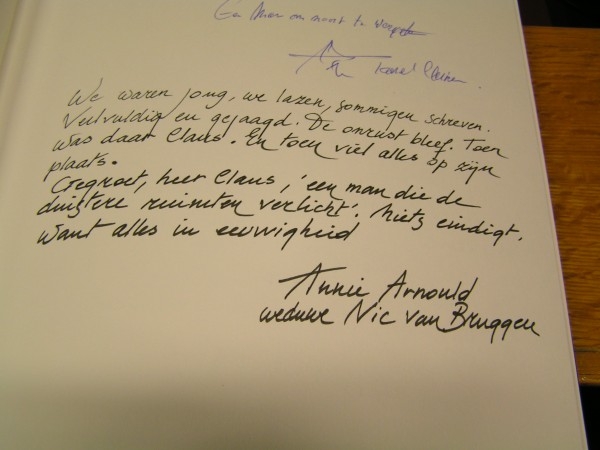 We waren jong, we lazen, sommigen schreven.
Veelvuldig en gejaagd. De onrust bleef. Toen
was daar Claus. En toen viel alles op zijn
plaats.
Gegroet, heer Claus, 'een man die de
duistere ruimten verlicht'. Niets eindigt,
want alles in eeuwigheid
Annie Arnould
weduwe Nic van Bruggen